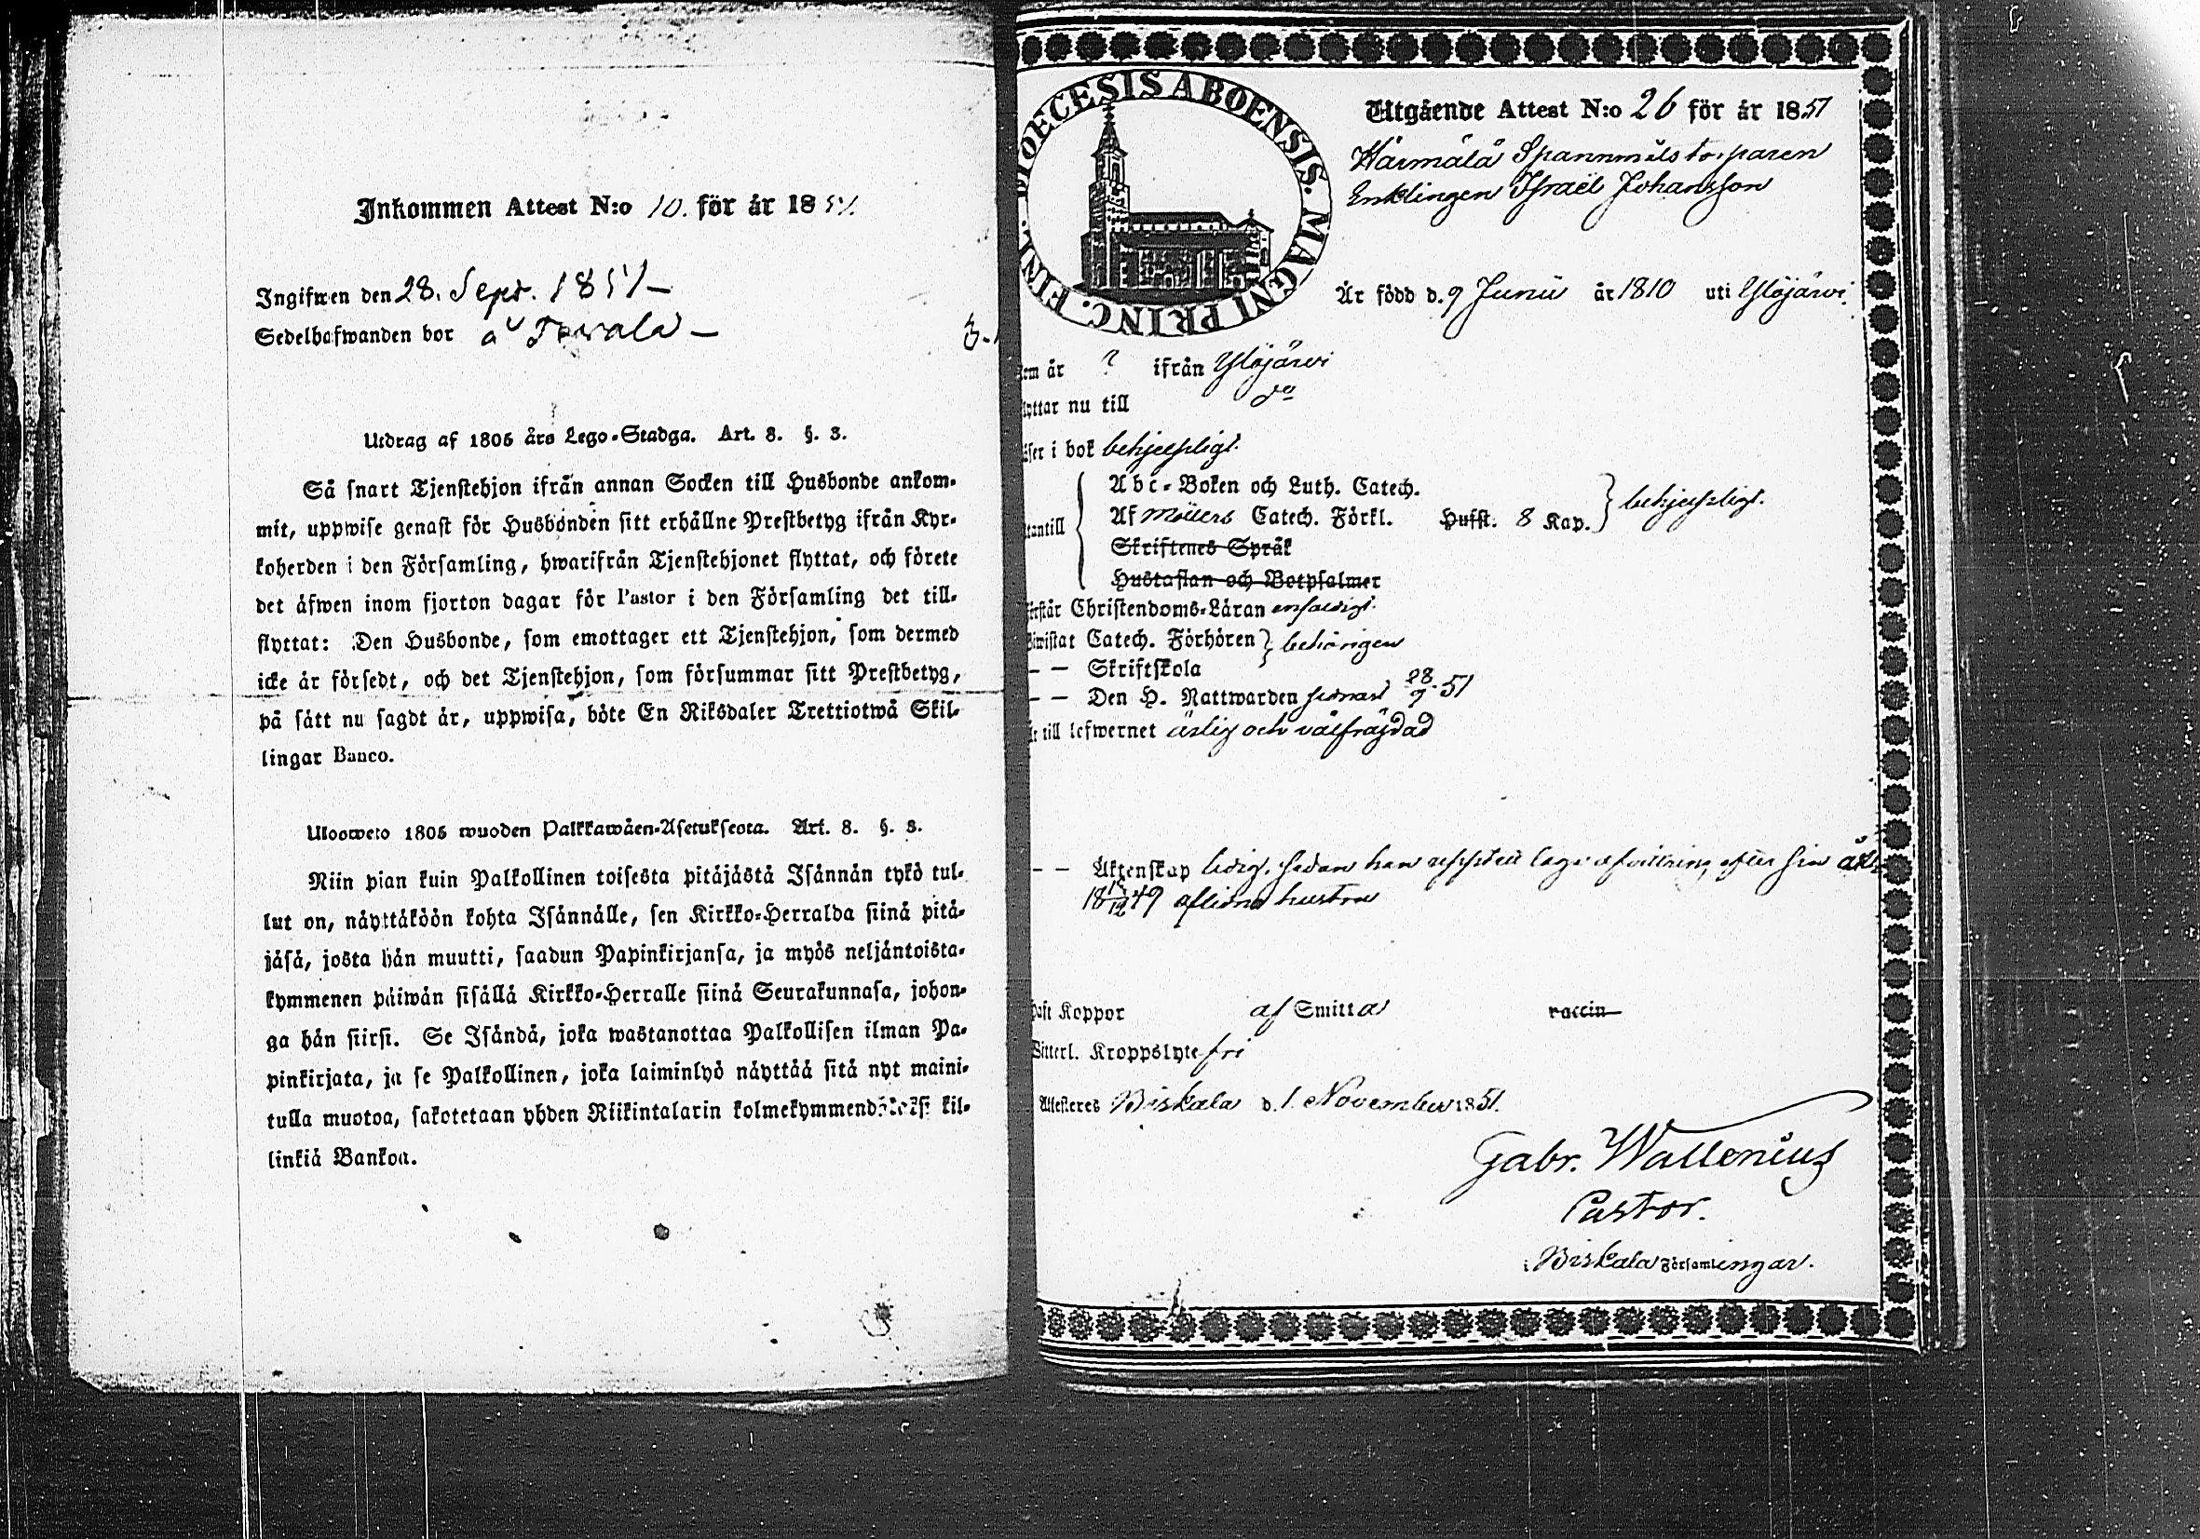 Inkommen Attest N:o 10. för år 1851.
Ingifwen den 28. Sept. 1851 –
Sedelhafwanden bor å –
Utdrag af 1805 års Lego-Stadga. Art. 8. §. 3.
Så snart Tjenstehjon ifrån annan Socken till Husbonde ankom-
mit, uppwise genast för Husbonden sitt erhållne Prestbetyg ifrån Kyr-
koherden i den Församling, hwarifrån Tjenstehjonet flyttat, och förete
det äfwen inom fjorton dagar för Pastor i den Församling det till-
flyttat: Den Husbonde, som emottager ett Tjenstehjon, som dermed
icke är försedt, och det Tjenstehjon, som försummar sitt Prestbetyg,
på sätt nu sagdt är, uppwisa, böte En Riksdaler Trettiotwå Skil-
lingar Banco.
Uloosweto 1805 wuoden Palkkawäen-Asetuksesta. Art. 8. §. 3.
Niin pian kuin Palkollinen toisesta pitäjästä Isännän tykö tul-
lut on, näyttäköön kohta Isännälle, sen Kirkko-Herralda siinä pitä-
jäsä, josta hän muutti, saadun Papinkirjansa, ja myös neljäntoista-
kymmenen päiwän sisällä Kirkko-Herralle siinä Seurakunnasa, johon-
ga hän siirsi. Se Isändä, joka wastanottaa Palkollisen ilman Pa-
pinkirjata, ja se Palkollinen, joka laiminlyö näyttää sitä nyt maini-
tulla muotoa, sakotetaan yhden Riikintalarin kolmekymmendäkaksi kil-
linkiä Bankoa.
DIOECESIS ABOENSIS. MAGNI PRINC. FINL.
Utgående Attest N:o 26 för år 1851
Härmälä Spannmåls torparen
Enklingen Israël Johansson
Är född d. 9 Junii år 1810 uti Ylöjärvi
om år ? ifrån Ylöjärvi
yttar nu till do
äser i bok behjelpligt.
Abc-Boken och Luth. Catech.
Af Möllers Catech. Förkl. Husst. 8 Kap. behjelpligt.
tantill
Skriftenes Språk
Hustaflan och Botpsalmer
örstår Christendoms-Läran enfaldigt.
iwistat Catech. Förhören behörigen
– – Skriftskola
– – Den H. Nattwarden sednast 28/9 51
r till lefwernet ärlig och välfräjdad
– – Äktenskap ledig, sedan han lag efter sin
18 12 49 aflidna hustru
haft Koppor af Smitta vaccin
Witterl. Kroppslyte fri
Attesteres Biskala d. 1. November 1851.
Gabr. Wallenius
Pastor.
i Biskala Församlingar.